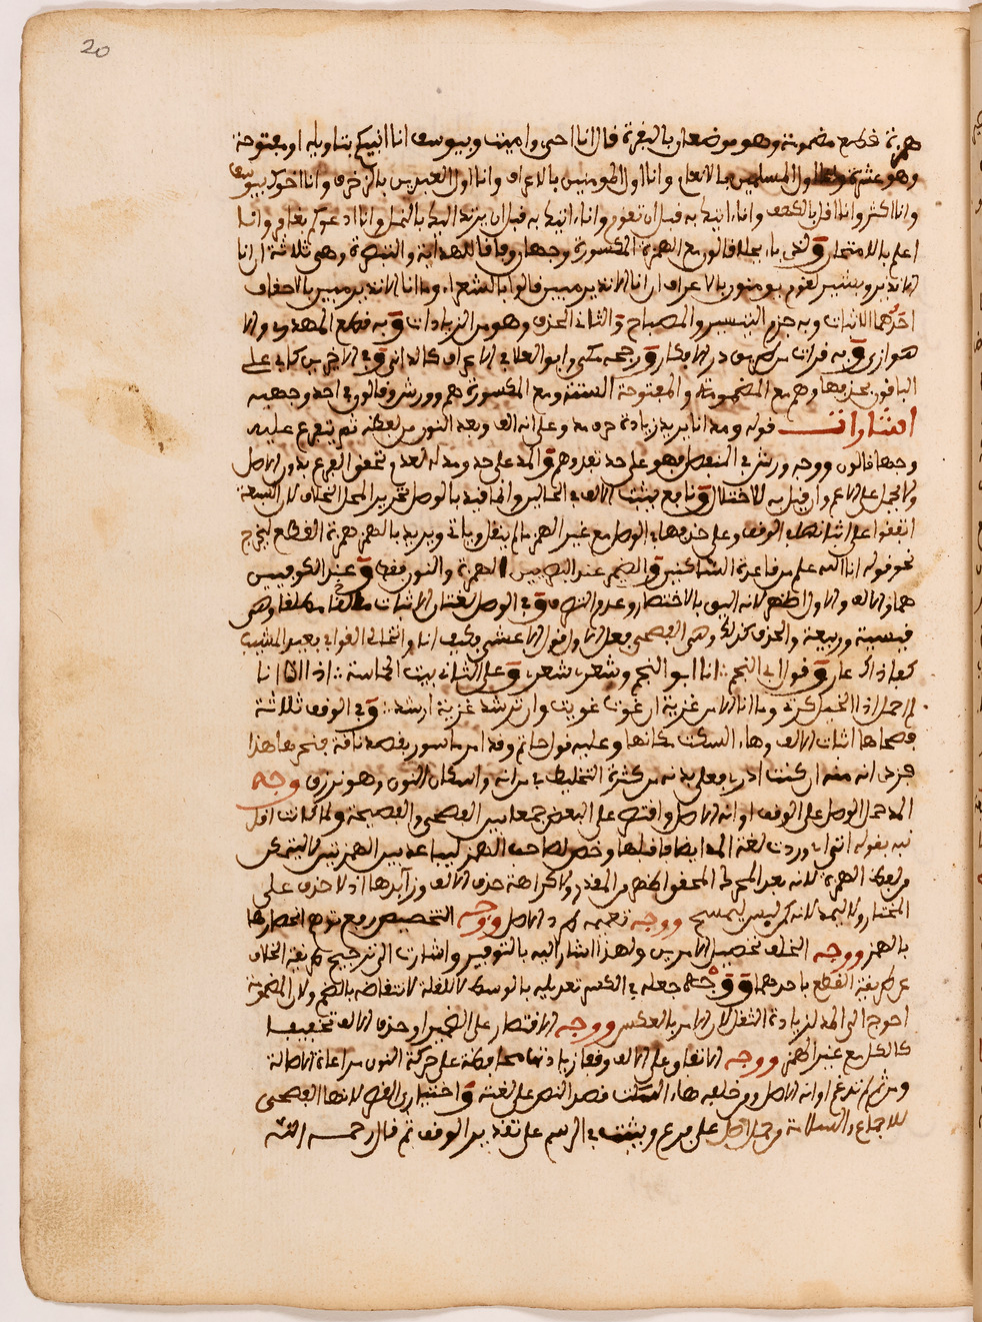 20
همزة قطع مضمومة وهو موضعان بالبقرة قال انا احيي واميت وبيوسف انا انبيكم بتاويله او مفتوحة
وهو عشرة وانا اول المسلمين بالانعام وانا اول المومنين بالاعراف وانا اول العبدين بالزخرف وانا اخوك بيوسف
وانا اكثر وانا اقل بالكهف وانا ءاتيك به قبل ان تقوم وانا ءاتيك به قبل ان يرتد اليك بالنمل وانا ادعوكم بغافر وانا
اعلم بالامتحان و لقي باء بخلا قالون مع الهمزة المكسورة وجهان وفاقا للهداية والتبصرة وهي ثلاثة ان انا
الا نذير وبشير لقوم يومنون بالاعراف ان انا الا نذير مبين قالوا بالشعراء وما انا الا نذير مبين بالاحقاف
احدهما الاثبات وبه جزم التيسير والمصباح و الثاني الحذف وهو من الزيادات و به قطع المهدوي والا
هوازي و به قرات من طريق و رجحه مكي وابو العلا في الاعراف كالداني و في الاخرين كما في على
الباقون بحذفها وهم مع المضمومة والمفتوحة الستة ومع المكسورة هم وورش وقالون في احد وجهيه
اشارات قوله ومد انا يريد زيادة حرف مد وعلى انه الف وبعد النون من لفظه ثم يتفرع عليه
وجها قالون ووجه ورش في المنفصل فهو على حد تعدوهم و المد على حد ومد له لعدم تحقق الفرع بدون الاصل
ولا يحمل على الاعم وان قيل به للاختلال و نافع يثبت الالف في الحالين وانما قيد بالوصل تحرير المحل الخلاف لان السبعة
اتفقوا على اثباتها في الوقف وعلى حذفها في الوصل مع غير الهمز ما لم ينقل وياتي ويريد بالهمز همزة القطع ليخرج
نحو قوله انا الله علم من قاعدة الساكنين و الضمير عند البصريين الهمزة والنون فقط و عند الكوفيين
هما والالف والاول اظهر لانه اليق بالاختصار وعدم التصرف و في الوصل لغتان الاثبات مطلقا وهي
قيسية وربيعة والحذف كذلك وهي الفصحى فعل الاول قول الاعشى فكيف انا وانتحالي القوافي بعيد المشيب
كفا ذاك عار و قول ابي النجم انا ابو النجم وشعري شعري و على الثاني بيت الحماسة اذا انا انا
لم احمل اذا الخيل كرت وما انا الا من غزية ان غوت غويت وان ترشد غزية ارشد و في الوقف ثلاثة
فصحاها اثبات الالف وهاء السكت مكانها وعليه قول حاتم وقد امر ماسور بفصد ناقة فنحرها هذا
فزدي انه منه ان كنت ادري فعلي بدنه من كثرة التخليط في من انه واسكان النون وهو نزر و وجه
المد حمل الوصل على الوقف او انه الاصل واقتصر على البعض جمعا بين الفصحى والفصيحة ولما كانت اقل
نبه بقوله اتى اي وردت لغة المد ايضا فاقبلها وخص لصاحب الهمز ليباعد بين الهمزتين لا ليتمكن
من لفظ الهمزة لانه بعد المحرك المحقق اظهر من المقدر ولا كراهة حذف الالف وزايدها اذ لا حذف على
المختار ولا ليمد لانه كر ليس بمسح ووجه تعميمه طرد الاصل ووجه التخصيص رفع توهم انحصارها
بالهمز ووجه الخلف تحصيل الامرين ولهذا اشار اليه بالتوفير واشارت الى ترجيح طريقة الخلاف
على طريقة القطع باحدهما و وجهه جعله في الكسر تعديله بالوسط لا للقلة لانتقاضه بالضم ولان المضمومة
احوج الى المد لزيادة الثقل لان الامر بالعكس ووجه الاقتصار على الضمير او حذف الالف تخفيفا
كالكل مع غير الهمز ووجه الاتفاق على الالف وقفا زيادتها محافظة على حركة النون مراعاة الاصالة
ومن ثم لم تدغم او انه الاصل ومن خلفه هاء السكت قصد النص على لغته و اختياري القصر لانها الفصحى
للاجماع والسلامة من حمل اصل على فرع ويثبت في الرسم على تقدير الوقف ثم قال رحمه الله